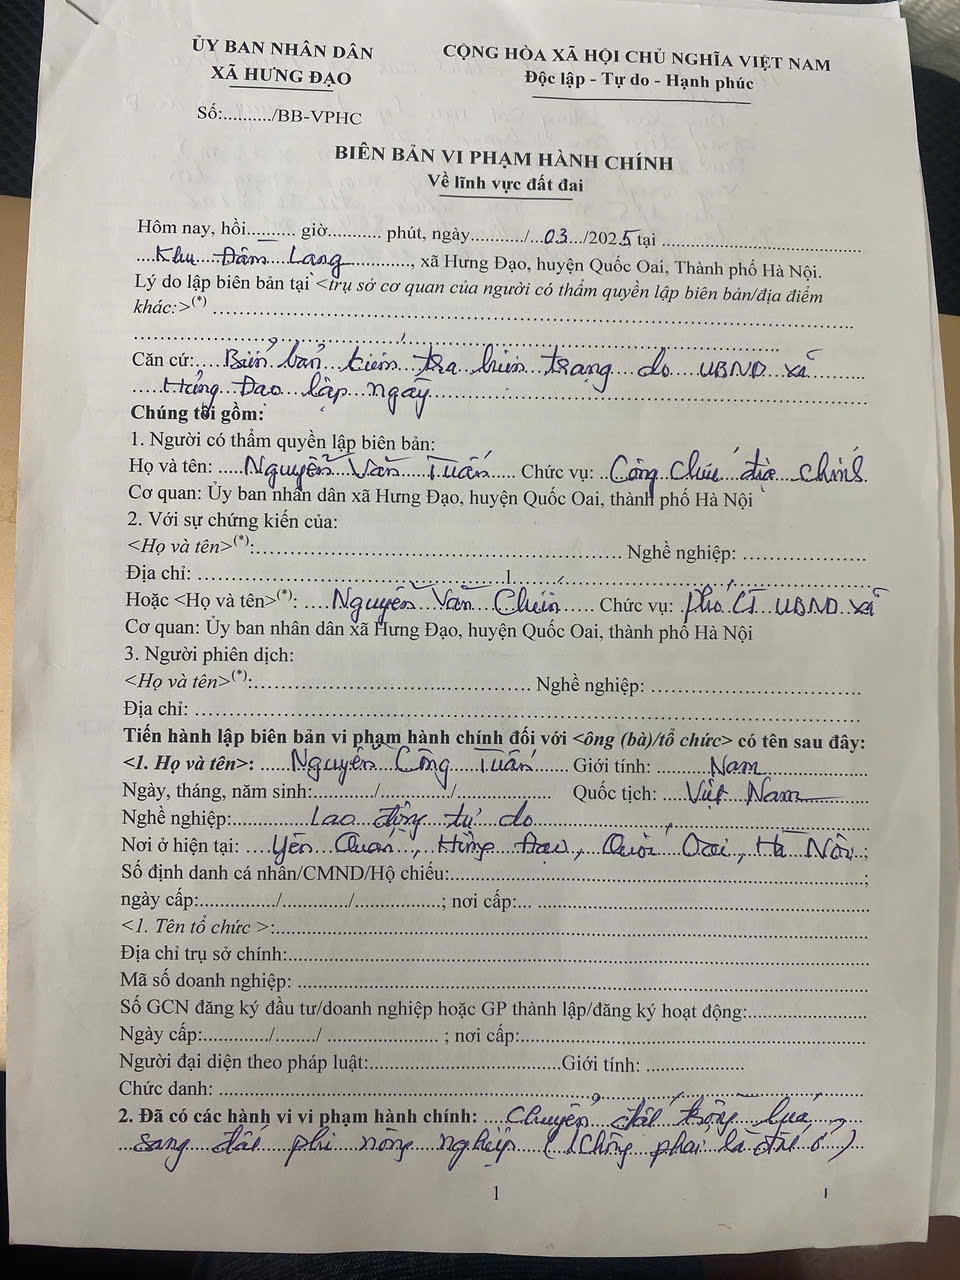 ỦY BAN NHÂN DÂN
XÃ HƯNG ĐẠO
CỘNG HÒA XÃ HỘI CHỦ NGHĨA VIỆT NAM
Độc lập - Tự do - Hạnh phúc
Số:........../BB-VPHC
BIÊN BẢN VI PHẠM HÀNH CHÍNH
Về lĩnh vực đất đai
Hôm nay, hồi......... giờ.......... phút, ngày........../...03.../2025 tại ....................................
...Khu Đầm Lang............, xã Hưng Đạo, huyện Quốc Oai, Thành phố Hà Nội.
Lý do lập biên bản tại <trụ sở cơ quan của người có thẩm quyền lập biên bản/địa điểm
khác:>(*) ....................................................................................................
....................................................................................................
Căn cứ:....Biên bản kiểm tra hiện trạng do UBND xã..........
....Hưng Đạo lập ngày....................................................................
Chúng tôi gồm:
1. Người có thẩm quyền lập biên bản:
Họ và tên: .....Nguyễn Văn Tuấn..... Chức vụ: ..Công chức địa chính.
Cơ quan: Ủy ban nhân dân xã Hưng Đạo, huyện Quốc Oai, thành phố Hà Nội
2. Với sự chứng kiến của:
<Họ và tên>(*):............................................................ Nghề nghiệp: ....................
Địa chỉ: ....................................................................................................
Hoặc <Họ và tên>(*): ....Nguyễn Văn Chiến...... Chức vụ: phó CT UBND xã
Cơ quan: Ủy ban nhân dân xã Hưng Đạo, huyện Quốc Oai, thành phố Hà Nội
3. Người phiên dịch:
<Họ và tên>(*):............................................. Nghề nghiệp: ..................................
Địa chỉ: ....................................................................................................
Tiến hành lập biên bản vi phạm hành chính đối với <ông (bà)/tổ chức> có tên sau đây:
<1. Họ và tên>: .....Nguyễn Công Tuấn...... Giới tính: .........Nam...............
Ngày, tháng, năm sinh:........../............/................ Quốc tịch: .....Việt Nam..........
Nghề nghiệp:..............Lao động tự do..................................................
Nơi ở hiện tại: ....Yên Quán, Hưng Đạo, Quốc Oai, Hà Nội..;
Số định danh cá nhân/CMND/Hộ chiếu:....................................................................;
ngày cấp:............/............/................; nơi cấp:... ......................................................
<1. Tên tổ chức >:....................................................................................................
Địa chỉ trụ sở chính:....................................................................................................
Mã số doanh nghiệp: ....................................................................................................
Số GCN đăng ký đầu tư/doanh nghiệp hoặc GP thành lập/đăng ký hoạt động:....................
Ngày cấp:........../......../ .................... ; nơi cấp:..........................................................
Người đại diện theo pháp luật:...................................Giới tính: ..................
Chức danh: ....................................................................................................
2. Đã có các hành vi vi phạm hành chính: ....Chuyển đất trồng lúa
..sang đất phi nông nghiệp (không phải là đất ở)
1